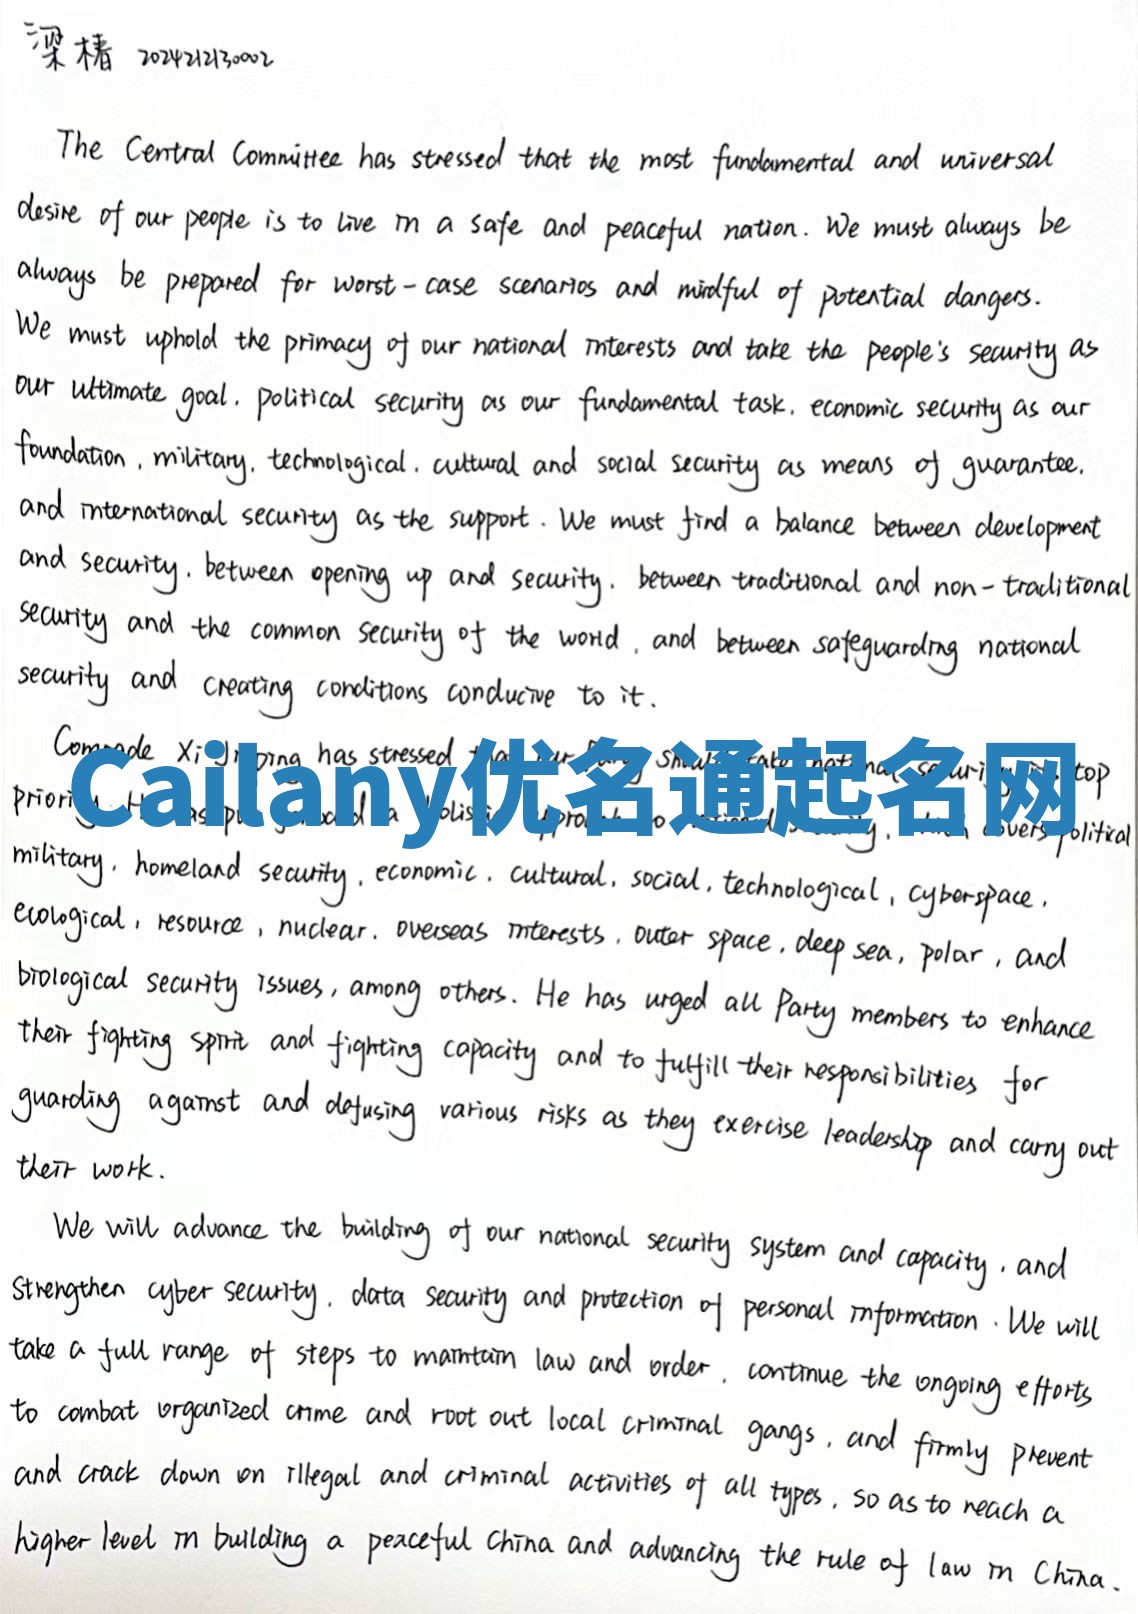 梁椿 2024212130002
The Central Committee has stressed that the most fundamental and universal
desire of our people is to live in a safe and peaceful nation. We must always be
always be prepared for worst-case scenarios and mindful of potential dangers.
We must uphold the primacy of our national interests and take the people's security as
our ultimate goal, political security as our fundamental task, economic security as our
foundation, military, technological, cultural and social security as means of guarantee,
and international security as the support. We must find a balance between development
and security, between opening up and security, between traditional and non-traditional
security and the common security of the world, and between safeguarding national
security and creating conditions conducive to it.
Comrade Xi Jinping has stressed that our Party should take national security top
Cailany优名通起名网
priority. a holistic approach to national security, which covers political
military, homeland security, economic, cultural, social, technological, cyberspace,
ecological, resource, nuclear, overseas interests, outer space, deep sea, polar, and
biological security issues, among others. He has urged all Party members to enhance
their fighting spirit and fighting capacity and to fulfill their responsibilities for
guarding against and defusing various risks as they exercise leadership and carry out
their work.
We will advance the building of our national security system and capacity, and
strengthen cyber security, data security and protection of personal information. We will
take a full range of steps to maintain law and order, continue the ongoing efforts
to combat organized crime and root out local criminal gangs, and firmly prevent
and crack down on illegal and criminal activities of all types, so as to reach a
higher level in building a peaceful China and advancing the rule of law in China.